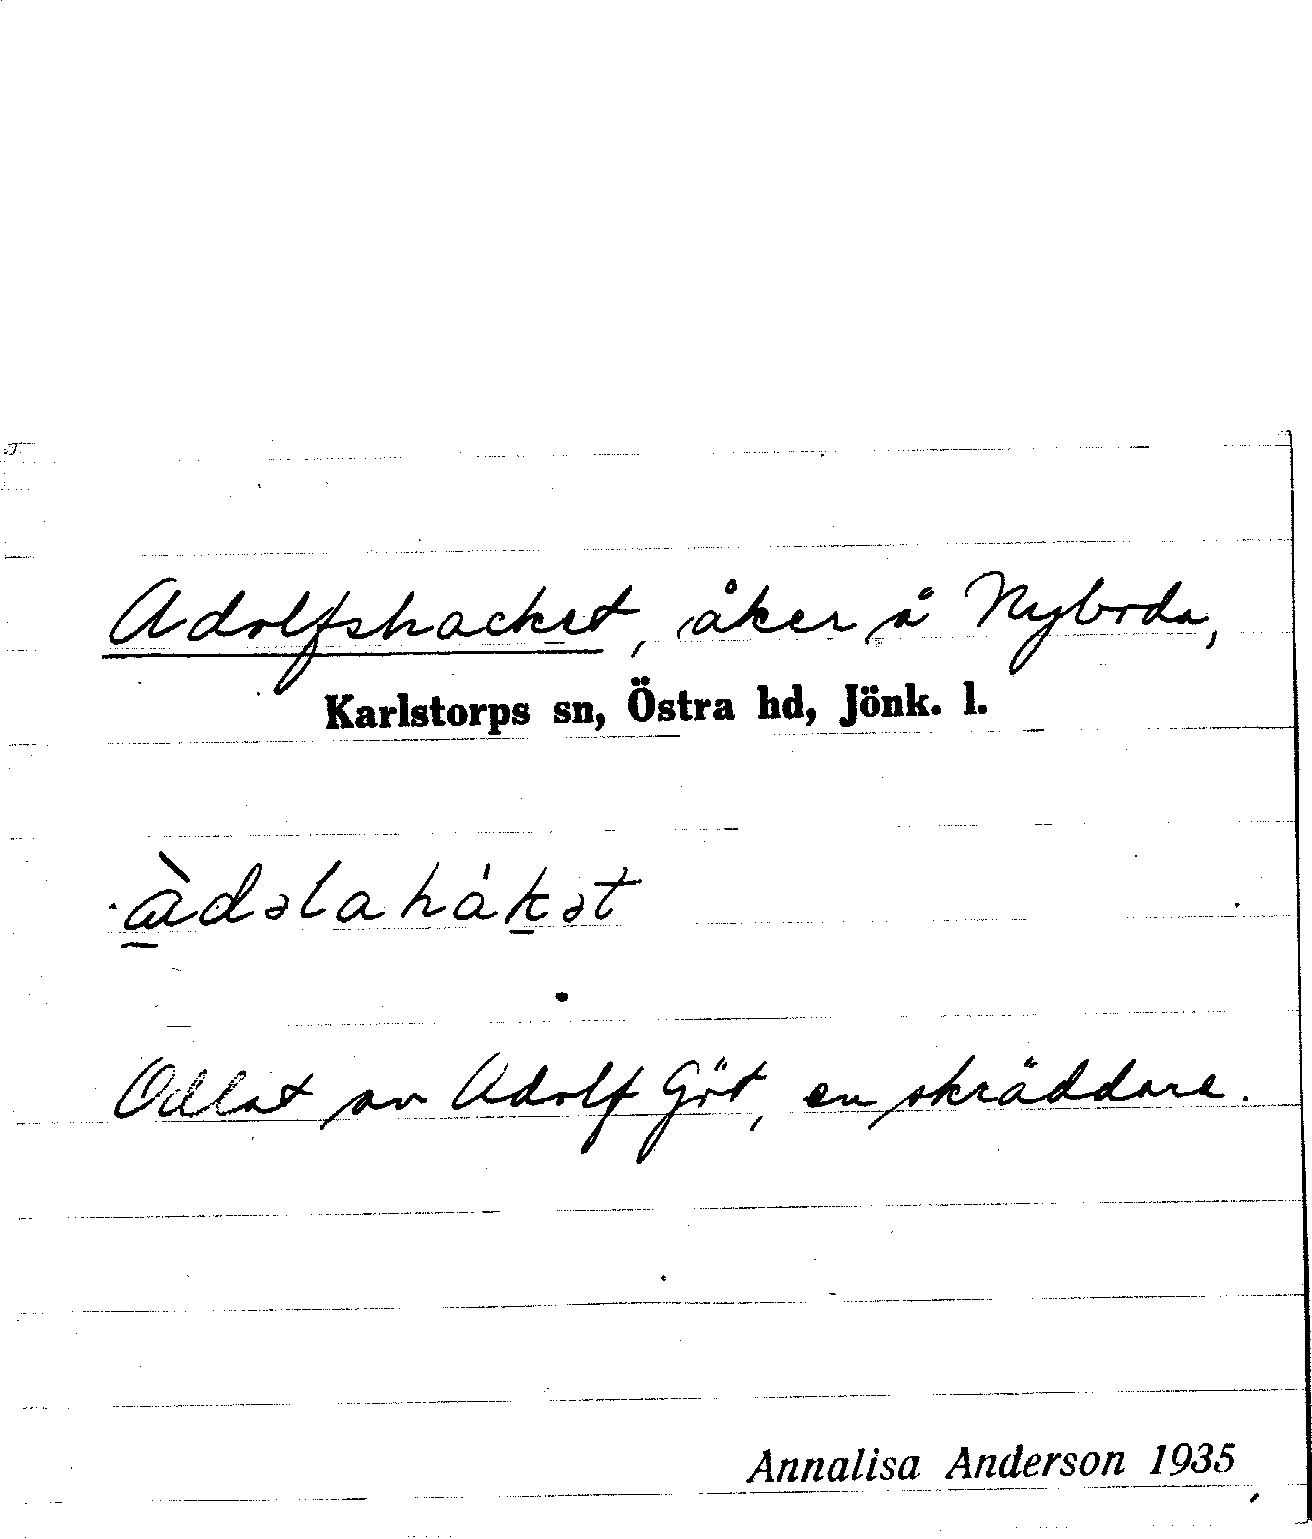 Adolfshacket, åker å Nyboda,
Karlstorps sn, Östra hd, Jönk. l.
à̱dəlahák̠ət
Odlat av Adolf Göt, en skräddare.
Annalisa Anderson 1935